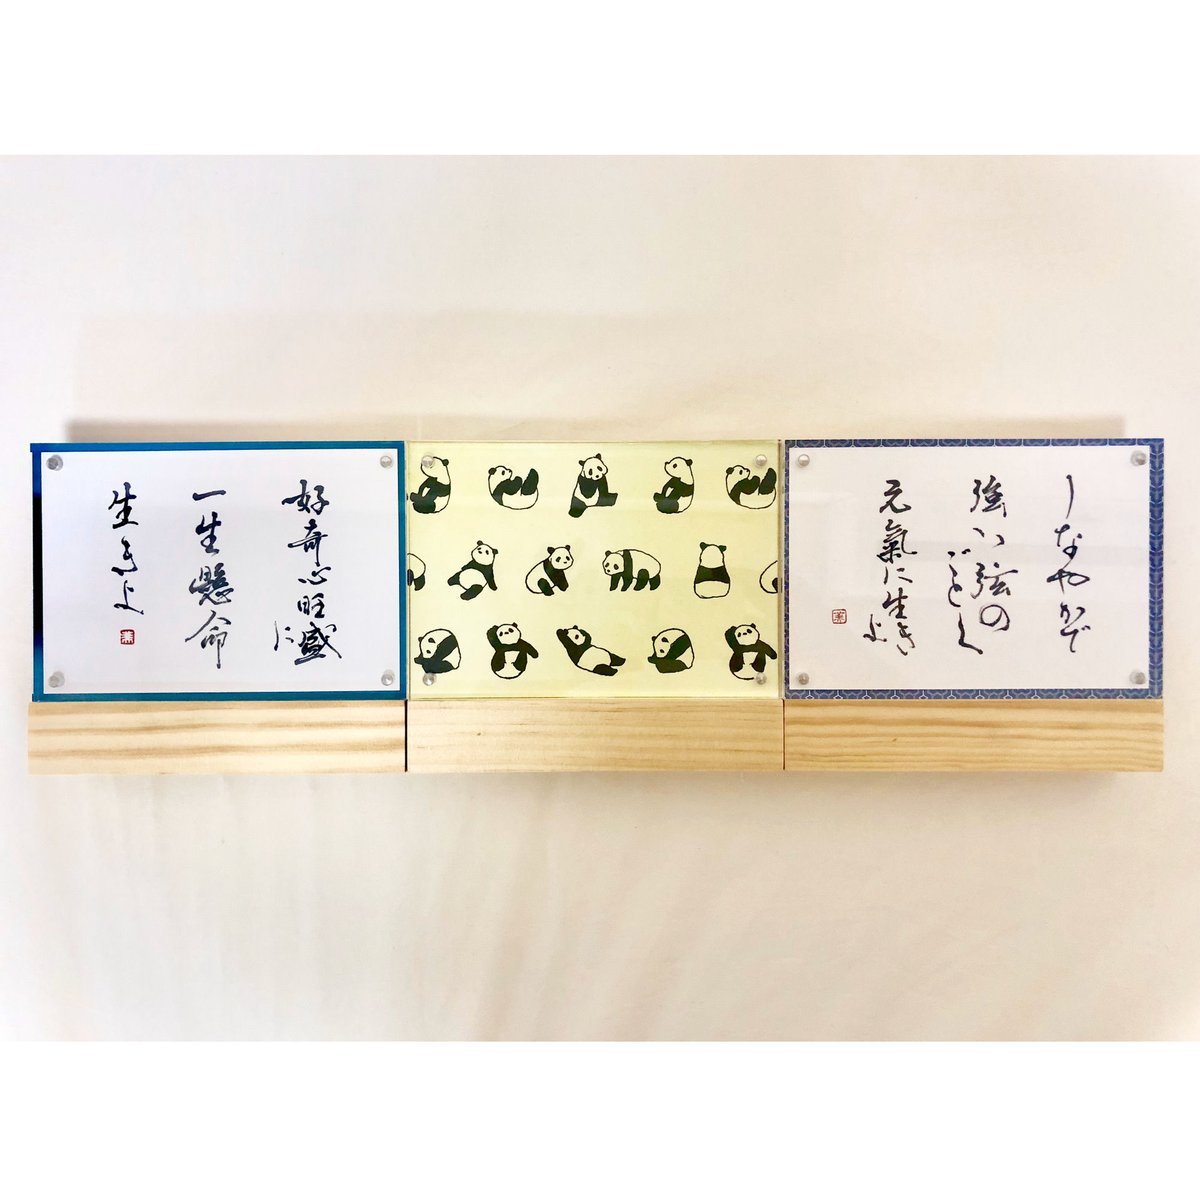 好奇心旺盛に
一生懸命
生きよ
しなやかで
強い弦の
ごとく
元氣に生き
よ